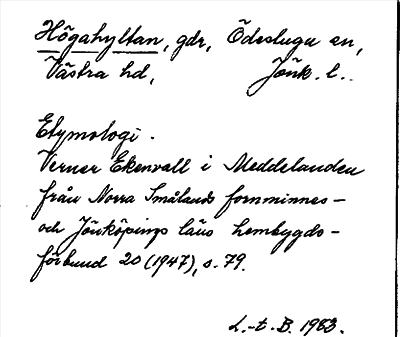 Högahyltan, gdr, Ödeslugu sn,
Västra hd, Jönk. l..
Etymologi.
Verner Ekenvall i Meddelanden
från Norra Smålands fornminnes-
och Jönköpings läns hembygds-
förbund 20 (1947), s. 79.
L.-t. B. 1983.